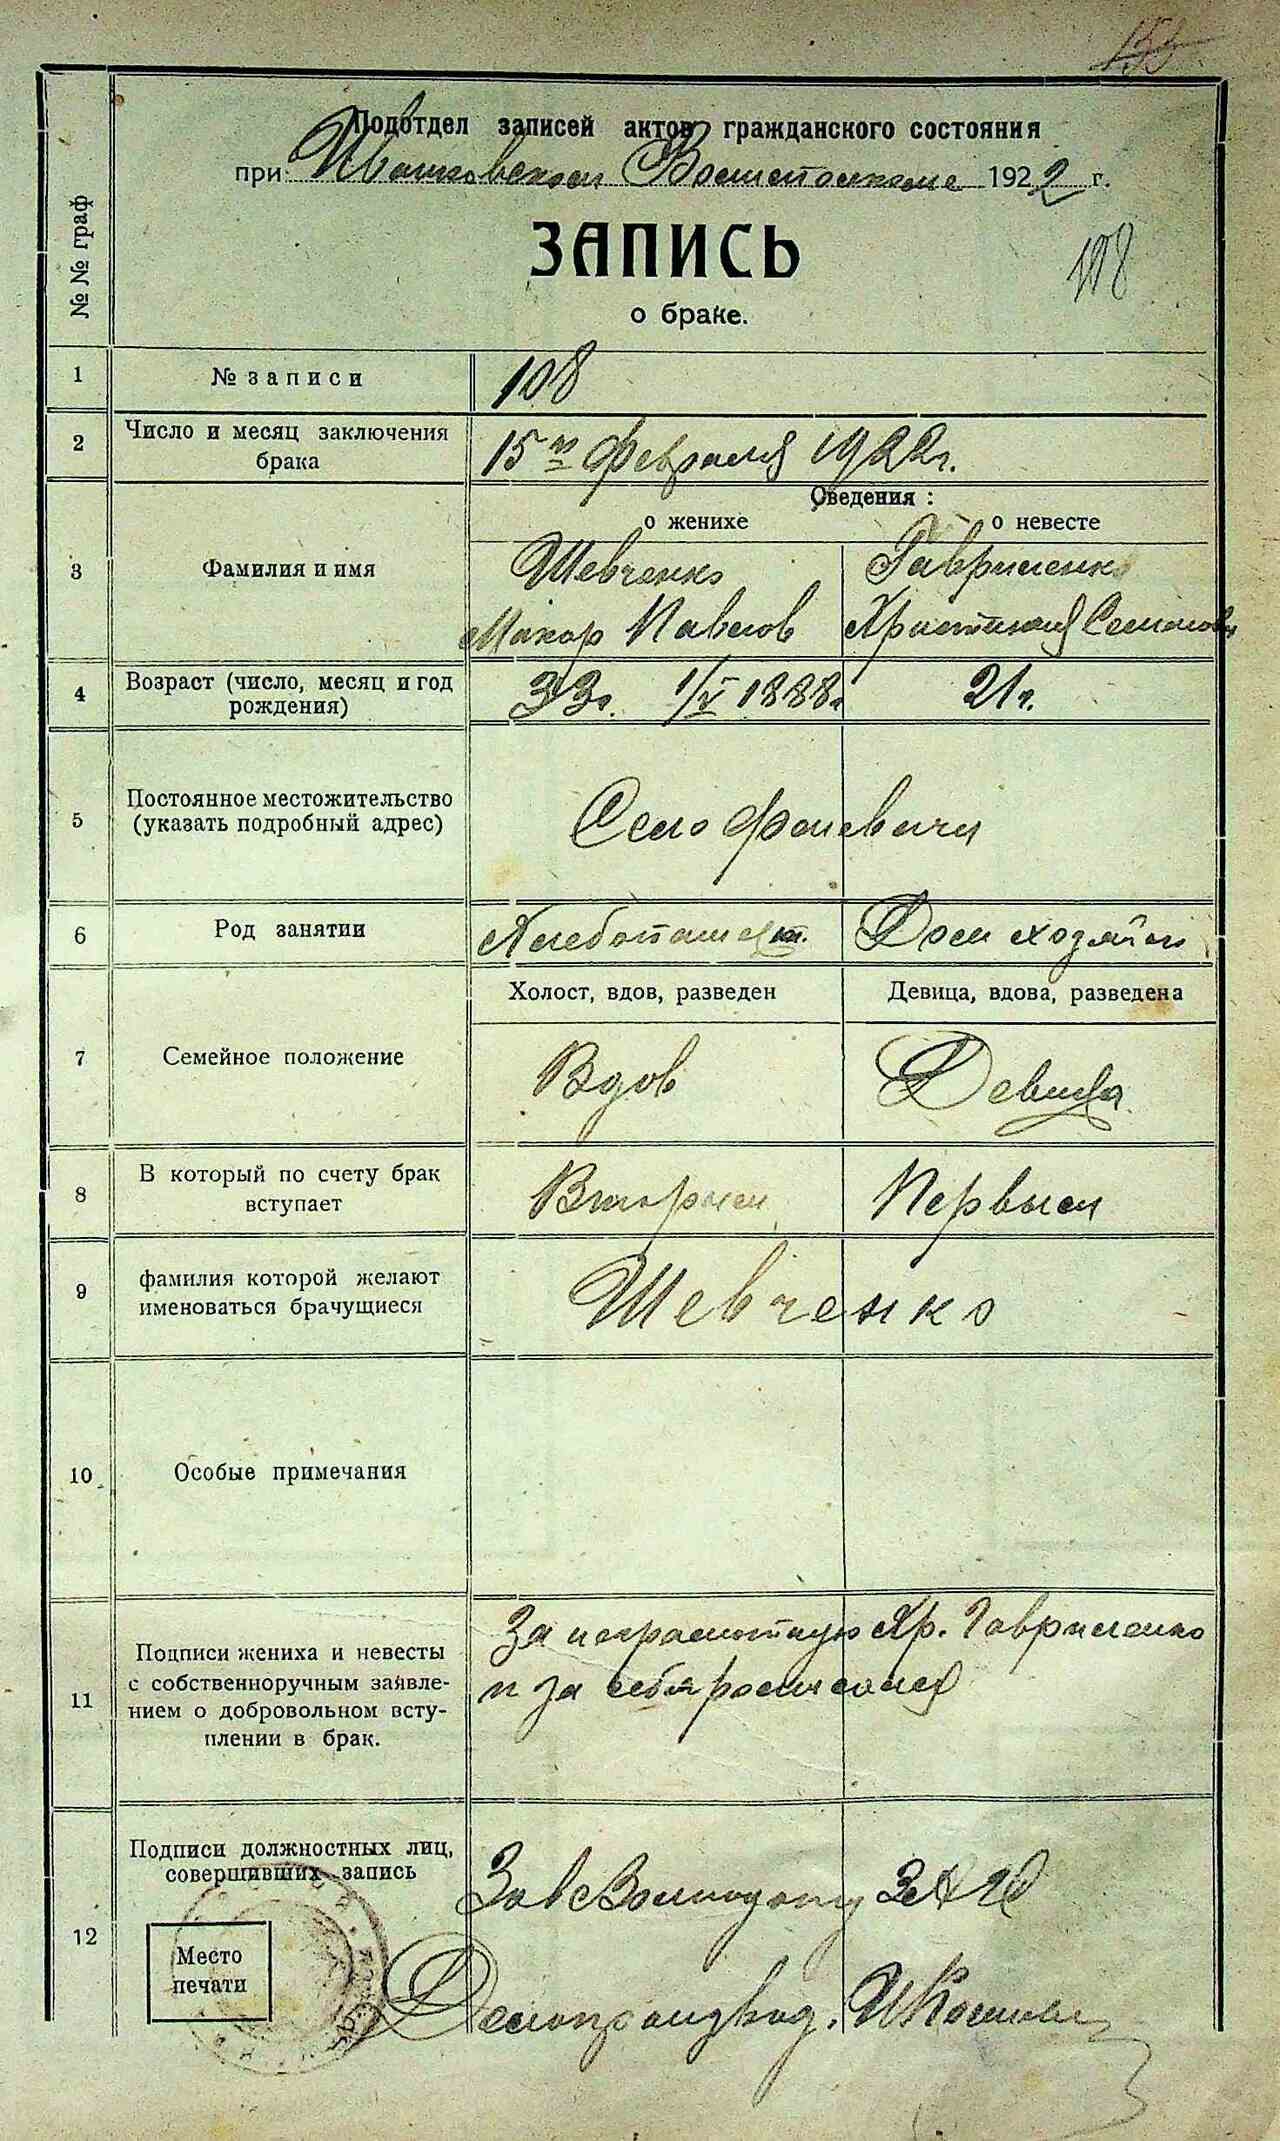 153
Подотдел записей актов гражданского состояния
при Ивашковском Волисполкоме 1922 г.
ЗАПИСЬ
о браке.
108
№ № граф
1 № записи 108
2 Число и месяц заключения брака 15го Февраля 1922г.
Сведения:
о женихе о невесте
3 Фамилия и имя Шевченко Гавриленко
Макар Павлов Христиния Семенова
4 Возраст (число, месяц и год рождения) 33г. 1/V 1888г 21г.
5 Постоянное местожительство
(указать подробный адрес) Село
6 Род занятии Хлебопашест. Дом хозяйка
Холост, вдов, разведен Девица, вдова, разведена
7 Семейное положение Вдов Девица
8 В который по счету брак
вступает Вторым Первым
9 фамилия которой желают
именоваться брачущиеся Шевченко
10 Особые примечания
11 Подписи жениха и невесты
с собственноручным заявле-
нием о добровольном всту-
плении в брак.
За неграмотную Хр. Гавриленко
и за себя росписался
12 Подписи должностных лиц,
совершивших запись
Место
печати
Зав ЗАГС
Делопроизвод.